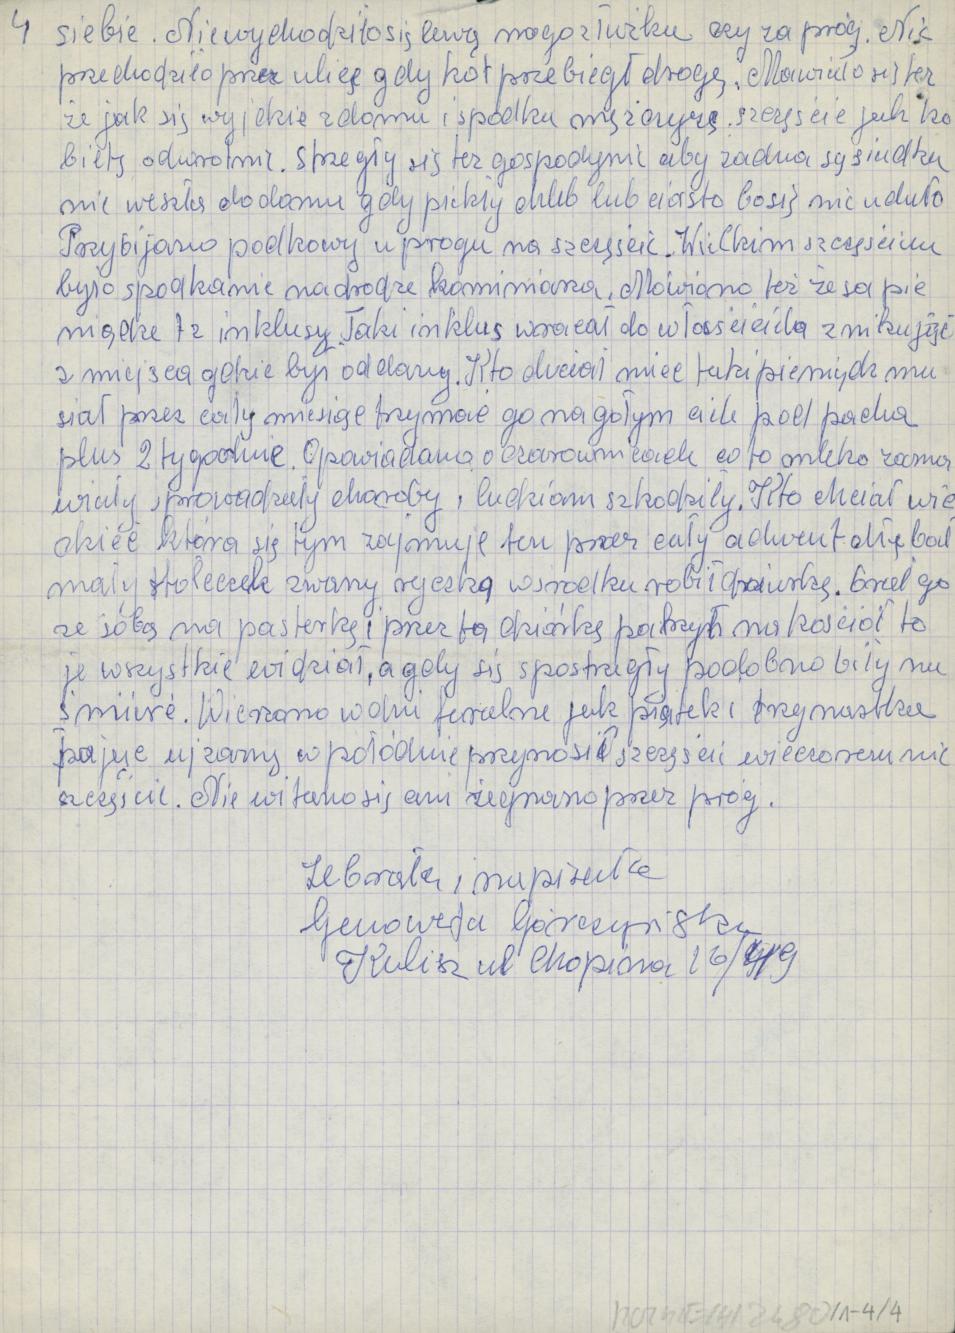 4 siebie. Niewychodziłosię lewą nogo złużka czy za próg. Nie
przechodziło przez ulicę gdy kot przebiegł drogę. Mawiało się też
że jak się wyjdzie zdomu i spodka mężczyzę szczęście jak ko
bietę odwrotnie. Strzegły się też gospodynie aby żadna sąsiadka
nie weszła dodomu gdy piekły chleb lub ciasto bosię nie udało
Przybijano podkowy uprogu na szczęście. Wielkim szczęściem
było spodkanie nadrodze kominiarza. Mówiono też że sa pie
niądze tz inklusy. Taki inklus wracał do właściciela znikając
z miejsca gdzie był oddany. Kto chciał mieć taki pieniądz mu
siał przez cały miesiąc trzymać go na gołym ciele pod pacha
plus 2 tygodnie. Opowiadano o czarownicach co to mleko zama
wiały, sprowadzały choroby, ludziom szkodziły. Kto chciał wie
dzieć która się tym zajmuje ten przez cały adwent dłębał
mały stołeczek zwany ryczką wśrodku robił dziurkę. brał go
ze sobą na pasterkę i przez tą dziórkę patrzył na kościół to
je wszystkie widział, a gdy się spostrzegły podobno biły na
śmierć. Wierzono wdni feralne jak piątek i trzynastka
pająk ujrzany wpołódnie przynosił szczęście wieczorem nie
szczęście. Nie witano się ani żegnano przez próg.
Zebrała i napisała
Genowefa Górczyńska
Kalisz ul Chopina 26/
/1-4/4